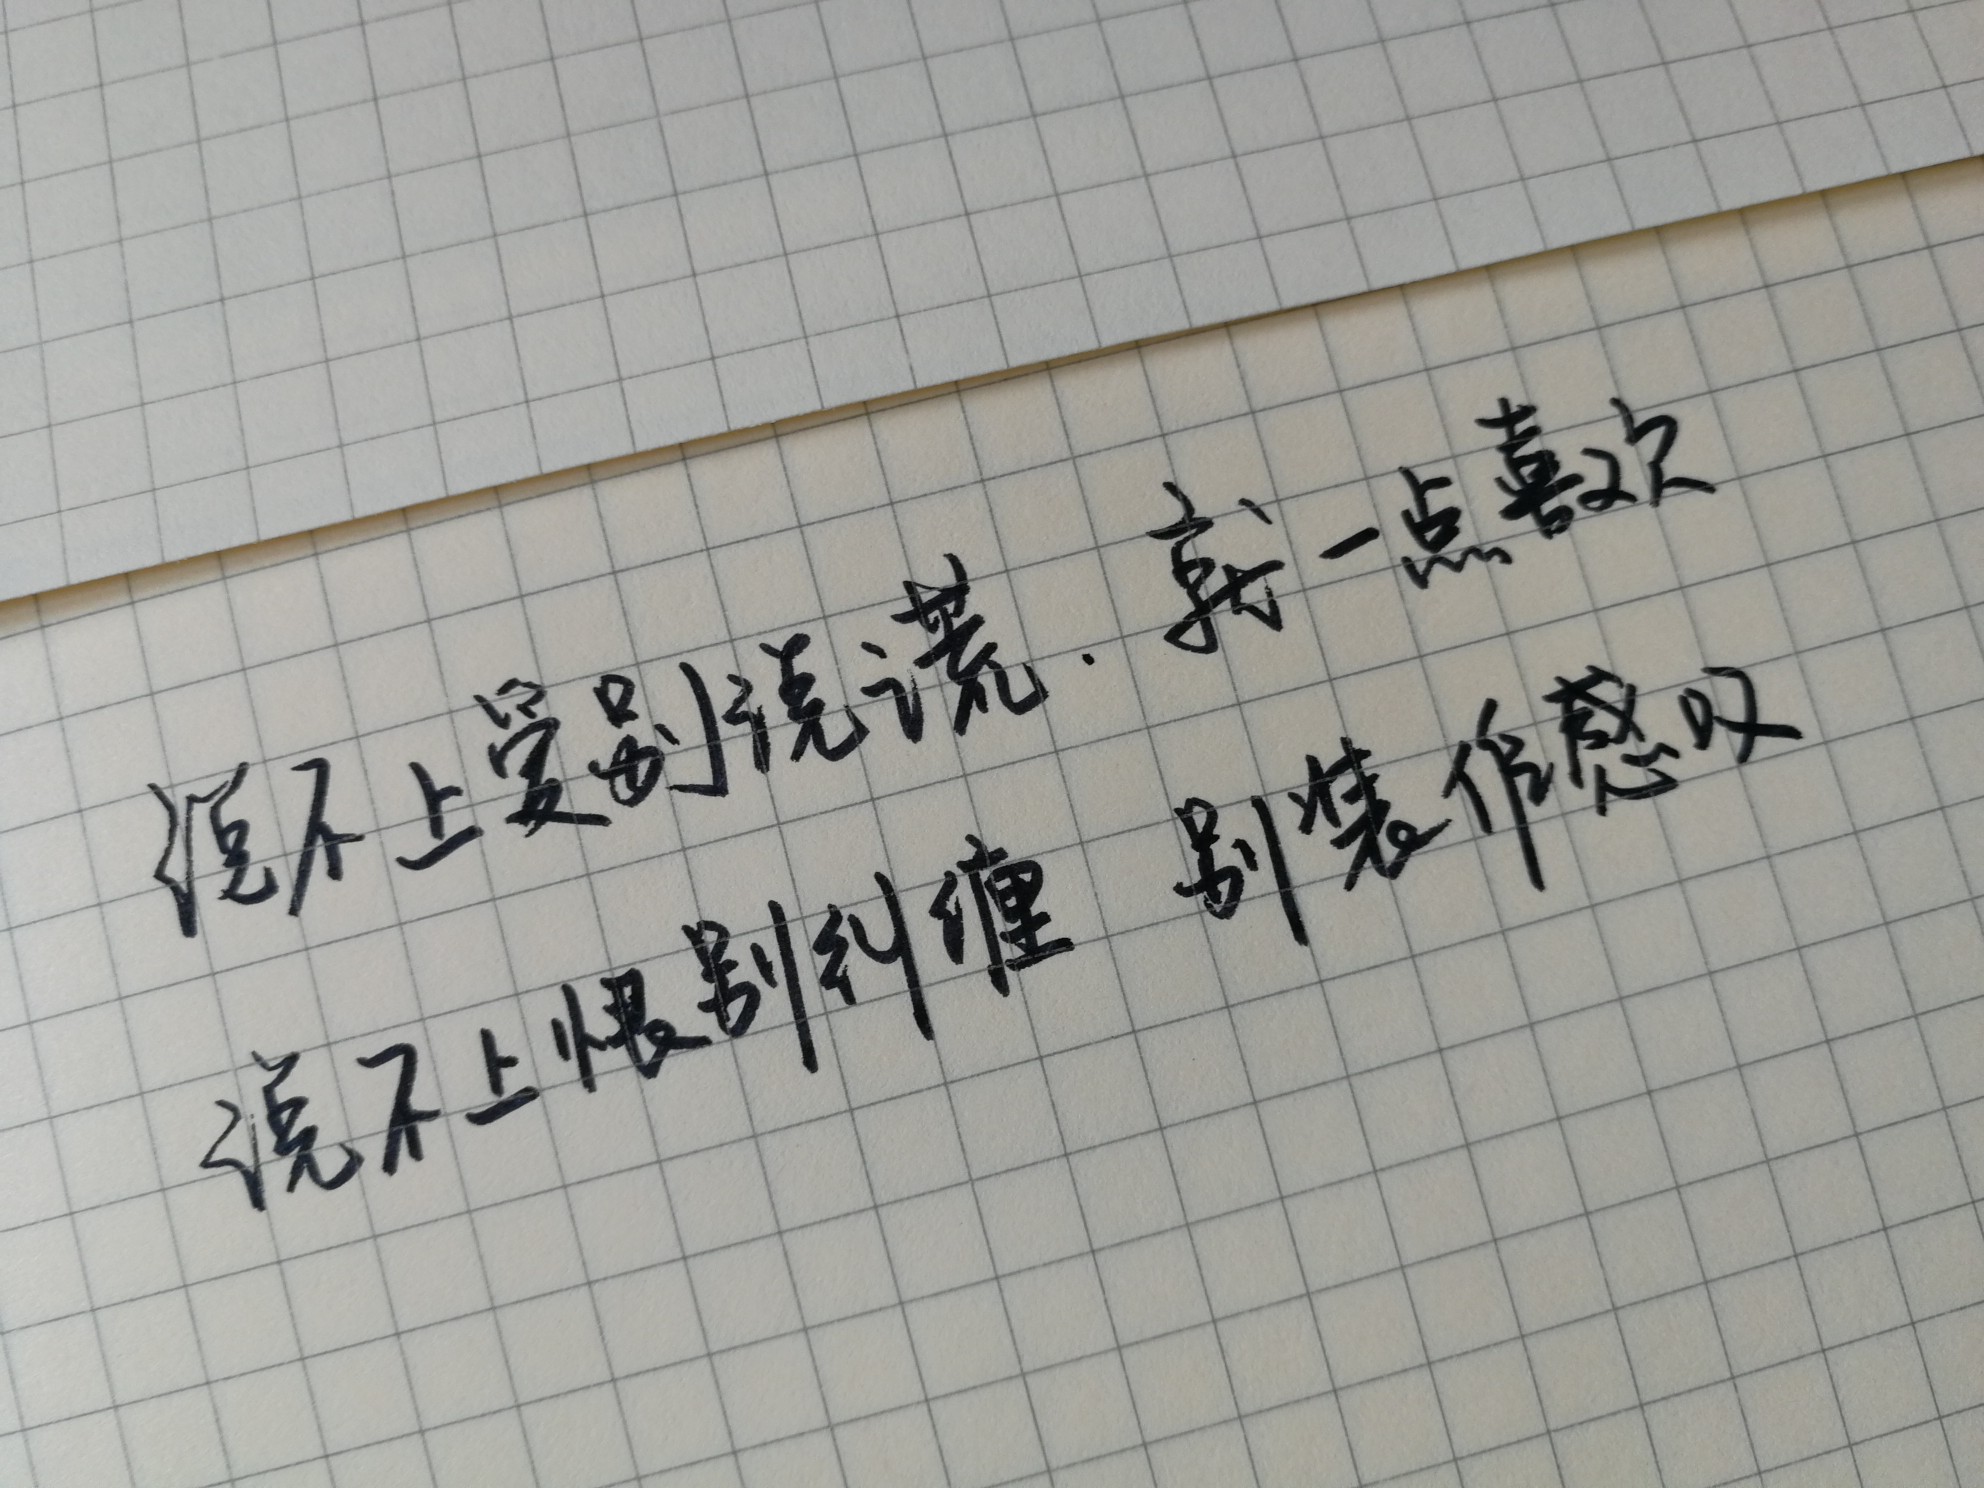 说不上爱别说谎.就一点喜欢
说不上恨别纠缠 别装作感叹